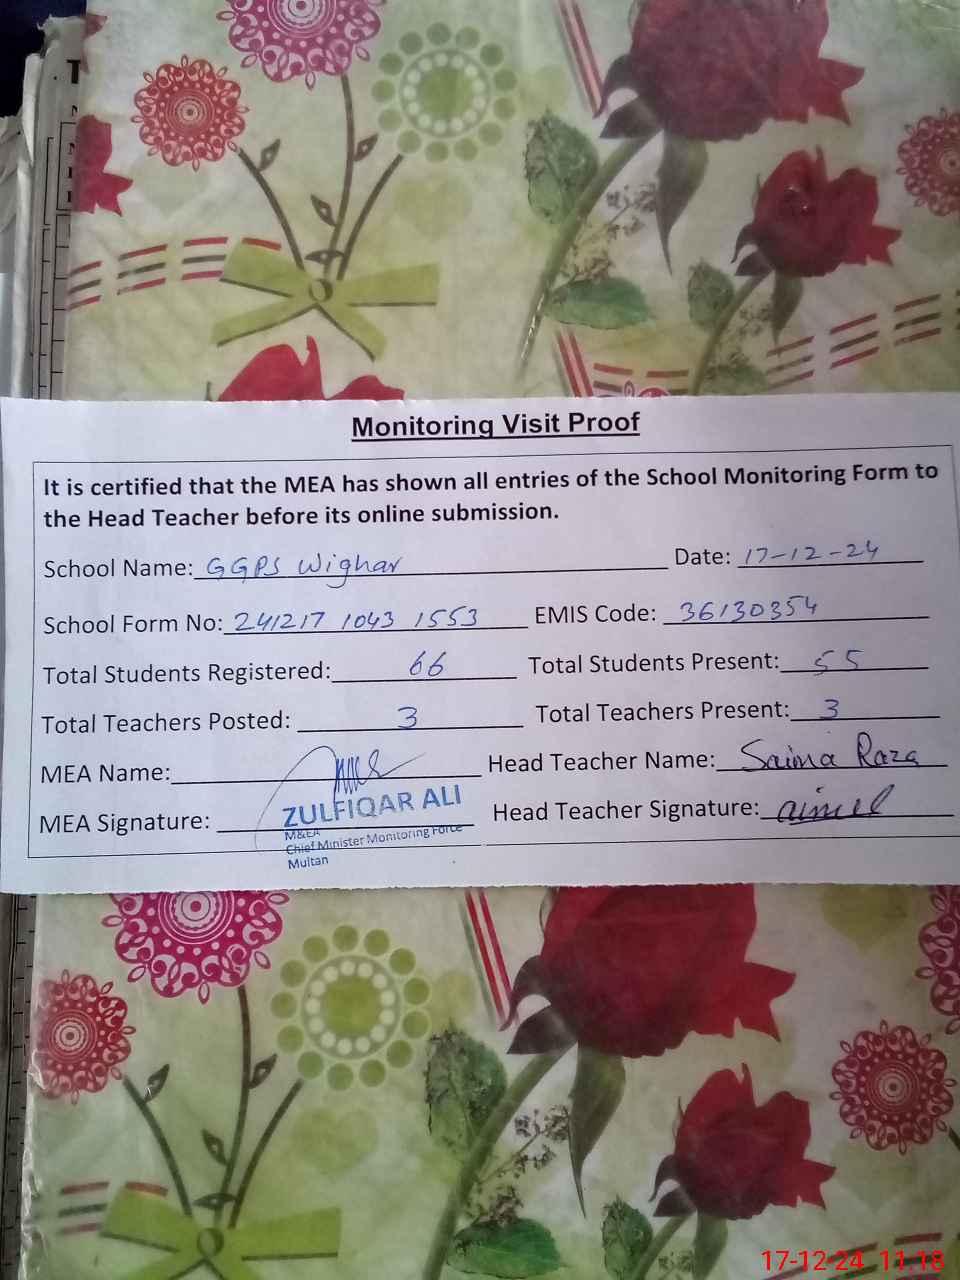 Monitoring Visit Proof
It is certified that the MEA has shown all entries of the School Monitoring Form to
the Head Teacher before its online submission.
School Name: GGPS Wighar Date: 17-12-24
School Form No: 241217 1043 1553 EMIS Code: 36130354
Total Students Registered: 66 Total Students Present: 55
Total Teachers Posted: 3 Total Teachers Present: 3
MEA Name: Head Teacher Name: Saima Raza
MEA Signature: ZULFIQAR ALI Head Teacher Signature:
M&EA
Chief Minister Monitoring Force
Multan
17-12-24 11:18